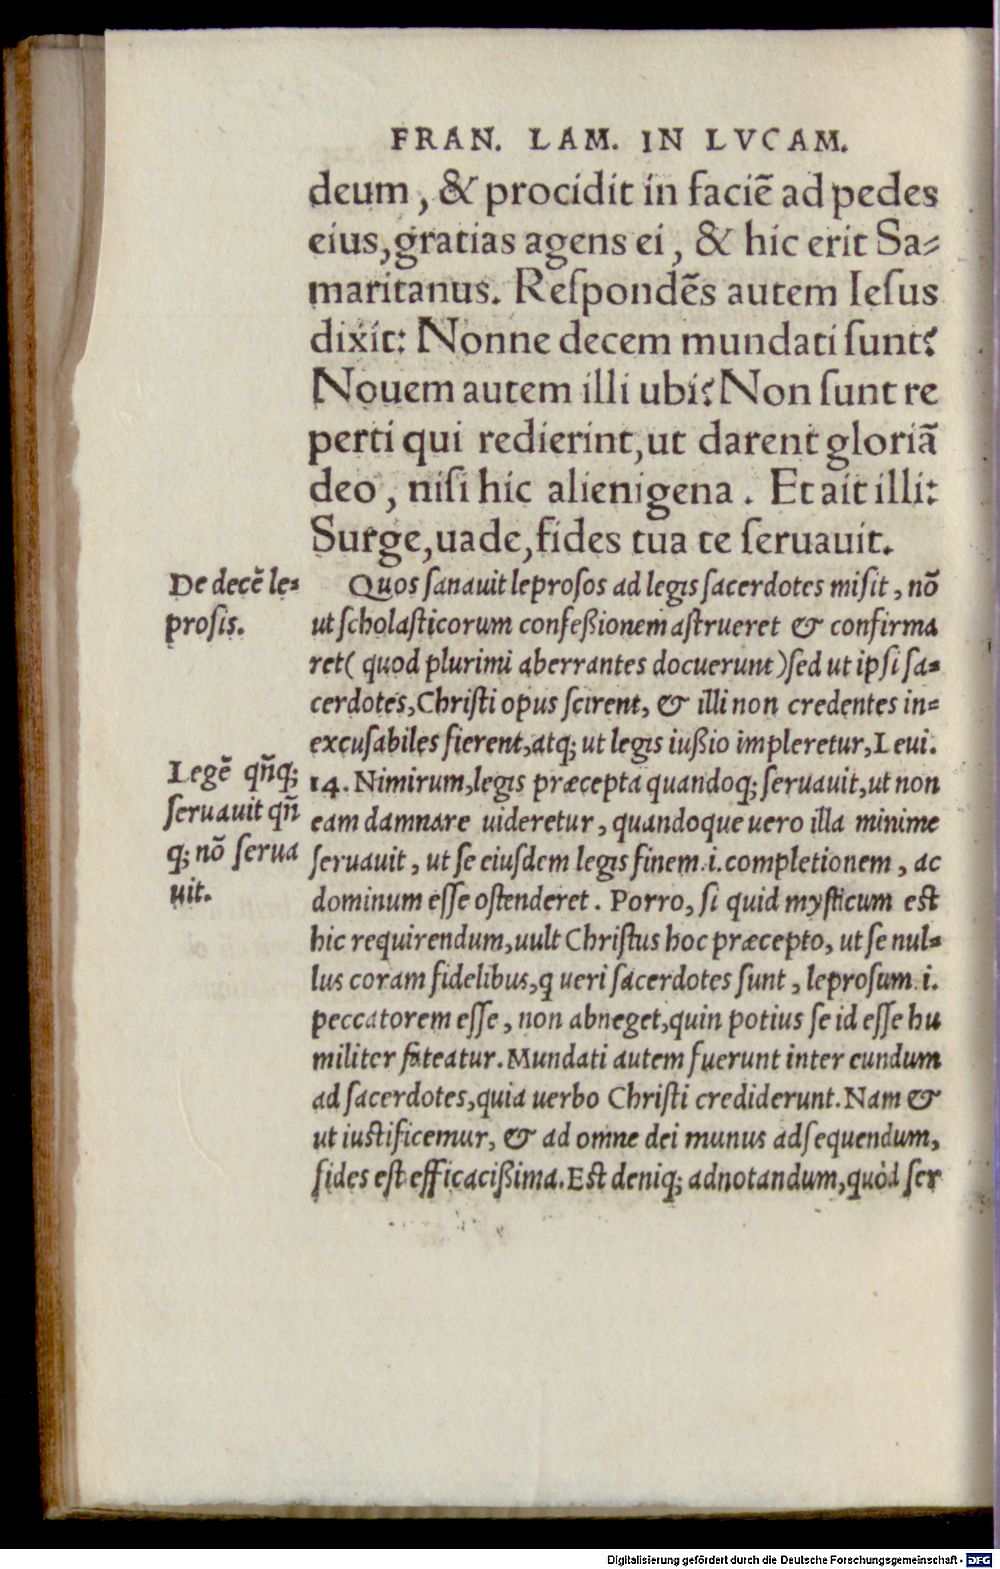 FRAN. LAM. IN LVCAM.
deum, & procidit in faciē ad pedes
eius, gratias agens ei, & hic erit Sa⸗
maritanus. Respondēs autem Iesus
dixit: Nonne decem mundati sunt?
Nouem autem illi ubi? Non sunt re
perti qui redierint, ut darent gloriā
deo, nisi hic alienigena. Et ait illi:
Surge, uade, fides tua te seruauit.
De decē le⸗
prosis.
Quos sanauit leprosos ad legis sacerdotes misit, nō
ut scholasticorum confeßionem astrueret & confirma
ret (quod plurimi aberrantes docuerunt) sed ut ipsi sa⸗
cerdotes, Christi opus scirent, & illi non credentes in⸗
excusabiles fierent, atq; ut legis iußio impleretur, Leui.
Legē qn̄q;
seruauit qn̄
q; nō serua
uit.
14. Nimirum, legis præcepta quandoq; seruauit, ut non
eam damnare uideretur, quandoque uero illa minime
seruauit, ut se eiusdem legis finem .i. completionem, ac
dominum esse ostenderet. Porro, si quid mysticum est
hic requirendum, uult Christus hoc præcepto, ut se nul⸗
lus coram fidelibus, q ueri sacerdotes sunt, leprosum .i.
peccatorem esse, non abneget, quin potius se id esse hu
militer fateatur. Mundati autem fuerunt inter eundum
ad sacerdotes, quia uerbo Christi crediderunt. Nam &
ut iustificemur, & ad omne dei munus adsequendum,
fides est efficacißima. Est deniq; adnotandum, quòd ser
Digitalisierung gefördert durch die Deutsche Forschungsgemeinschaft - DFG